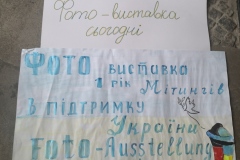 Фото - виставка
сьогодні
Фото виставка
1 рік Мітингів
в підтримку
України
Foto - Ausstellung